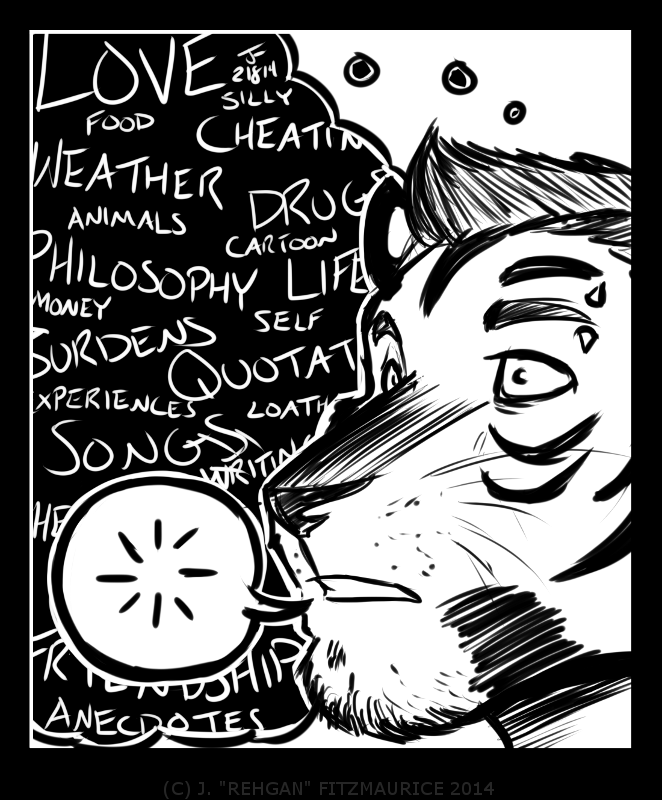 LOVE
JF
21814
SILLY
FOOD
CHEATIN
WEATHER
DRUG
ANIMALS
CARTOON
PHILOSOPHY
LIFE
MONEY
SELF
BURDENS
QUOTAT
EXPERIENCES
LOATH
SONGS
WRITING
HE
FRIENDSHIP
ANECDOTES
(C) J. "REHGAN" FITZMAURICE 2014